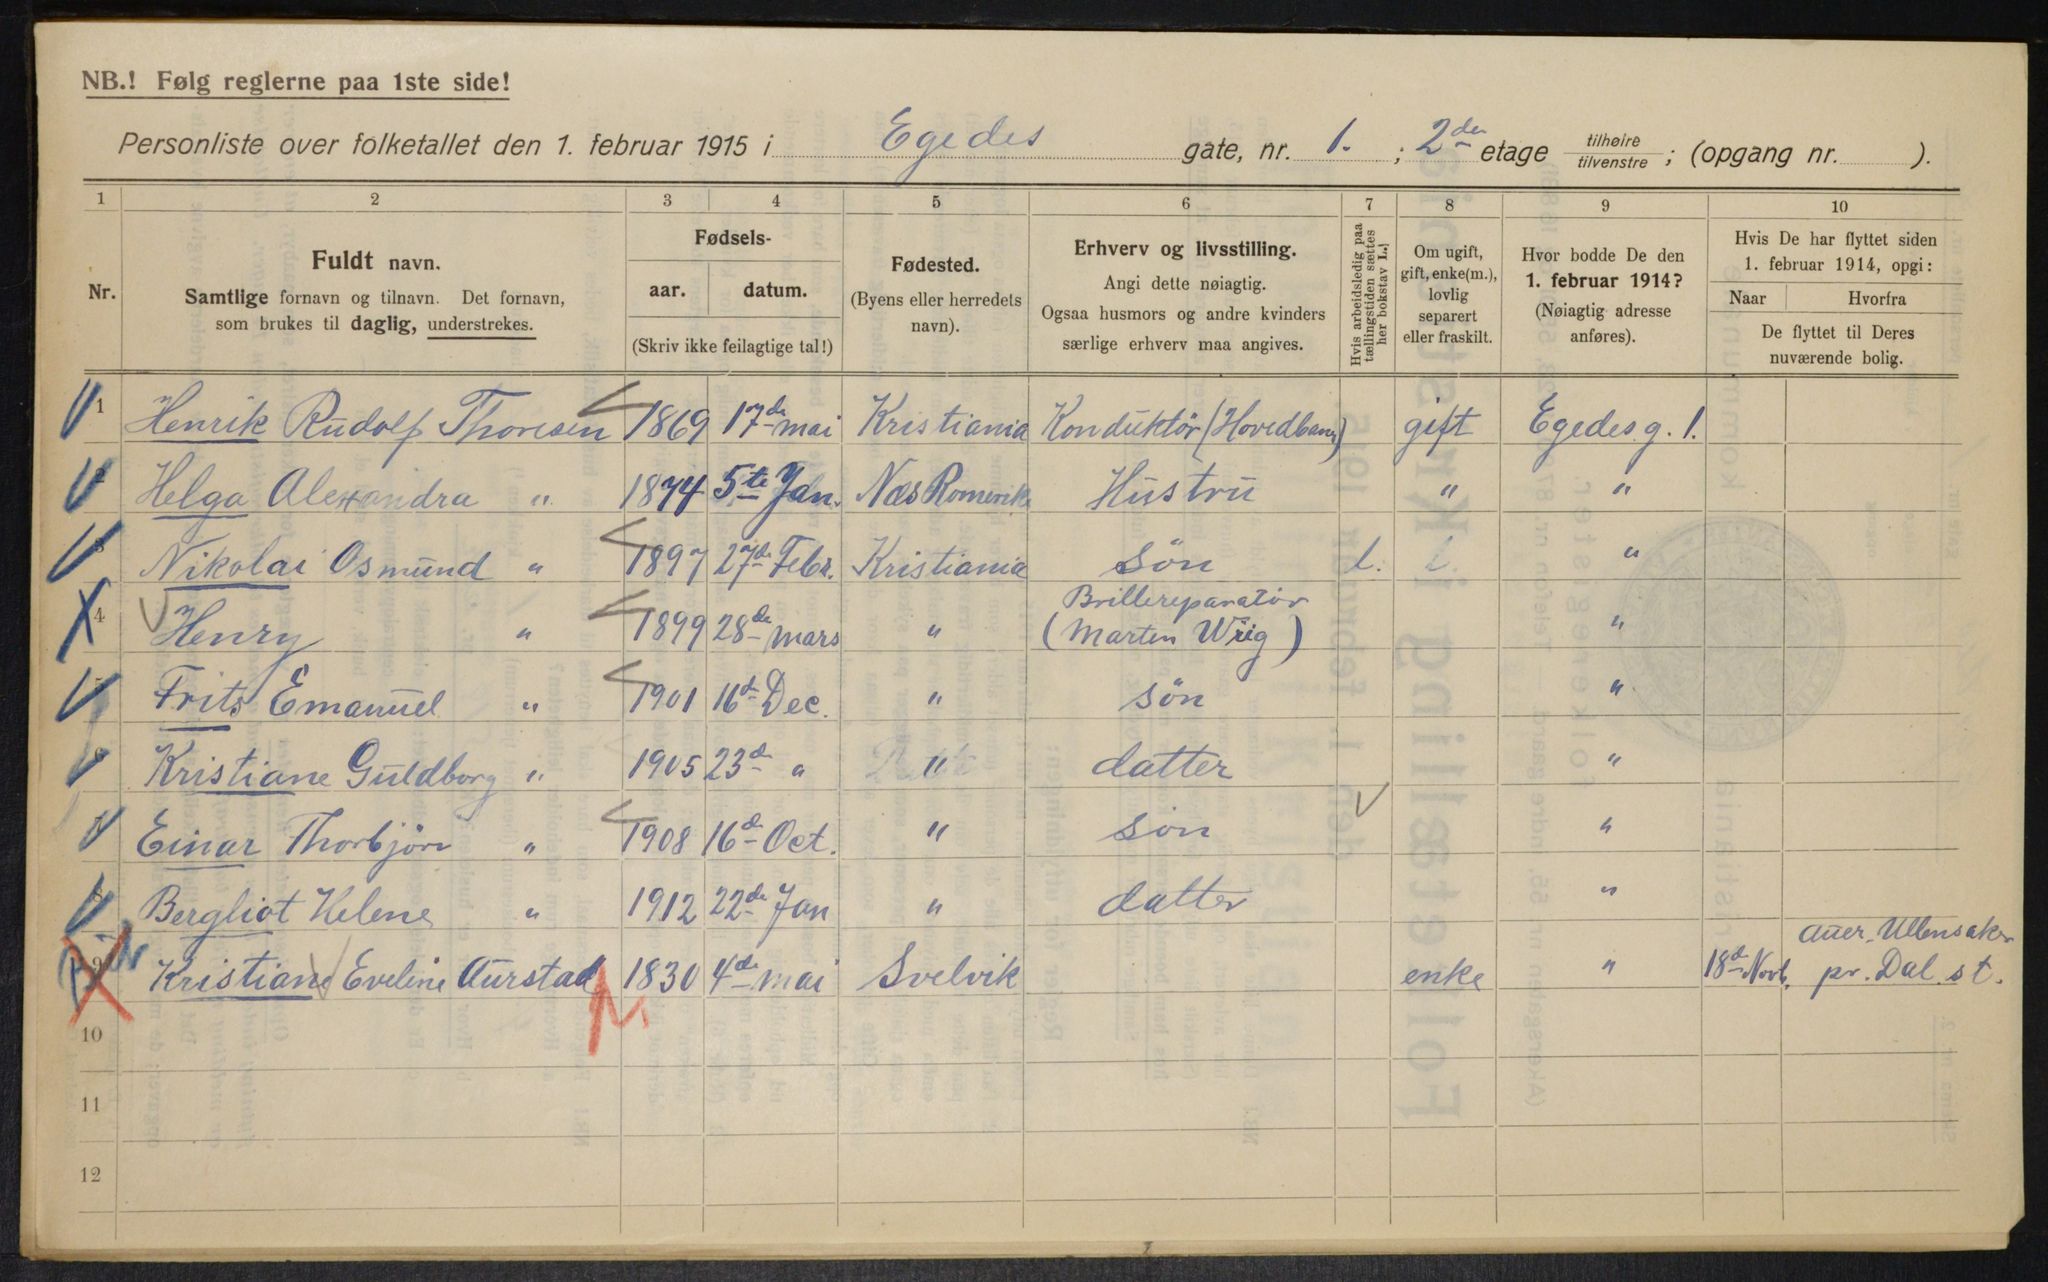 NB.! Følg reglerne paa 1ste side!
Personliste over folketallet den 1. februar 1915 i Egedes gate, nr. 1. ; 2den etage tilhøire tilvenstre ; (opgang nr. ).
1 2 3 4 5 6 7 8 9 10
Nr.
Fuldt navn.
Samtlige fornavn og tilnavn. Det fornavn,
som brukes til daglig, understrekes.
Fødsels-
aar. datum.
(Skriv ikke feilagtige tal!)
Fødested.
(Byens eller herredets
navn).
Erhverv og livsstilling.
Angi dette nøiagtig.
Ogsaa husmors og andre kvinders
særlige erhverv maa angives.
Hvis arbeidsledig paa
tællingstiden sættes
her bokstav L.!
Om ugift,
gift, enke(m.),
lovlig
separert
eller fraskilt.
Hvor bodde De den
1. februar 1914?
(Nøiagtig adresse
anføres).
Hvis De har flyttet siden
1. februar 1914, opgi:
Naar Hvorfra
De flyttet til Deres
nuværende bolig.
1 Henrik Rudolf Thoresen 1869 17de mai Kristiania Konduktör (Hovedban) gift Egedes g. 1.
2 Helga Alexandra " 1874 5te Jan. Næs Romerike Hustru " "
3 Nikolai Osmund " 1897 27de Febr. Kristiania sön l. "
4 Henry " 1899 28de mars " Brillereparatör (Marten Wiig) "
5 Frits Emanuel " 1901 16de Dec. " sön "
6 Kristiane Guldborg " 1905 23de " " datter "
7 Einar Thorbjörn " 1908 16de Oct. " sön "
8 Bergliot Helene " 1912 22de Jan " datter "
9 Kristiane Eveline Aurstad 1830 4de mai Svelvik enke " 18de Novb. Auer, Ullensaker pr. Dal st.
10
11
12